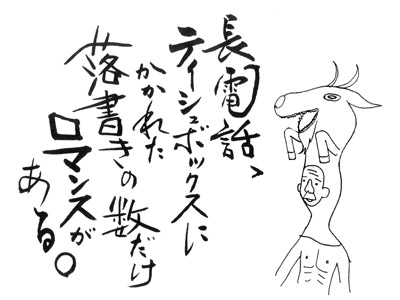 長電話、
ティシュボックスに
かかれた
落書きの数だけ
ロマンスが
ある。